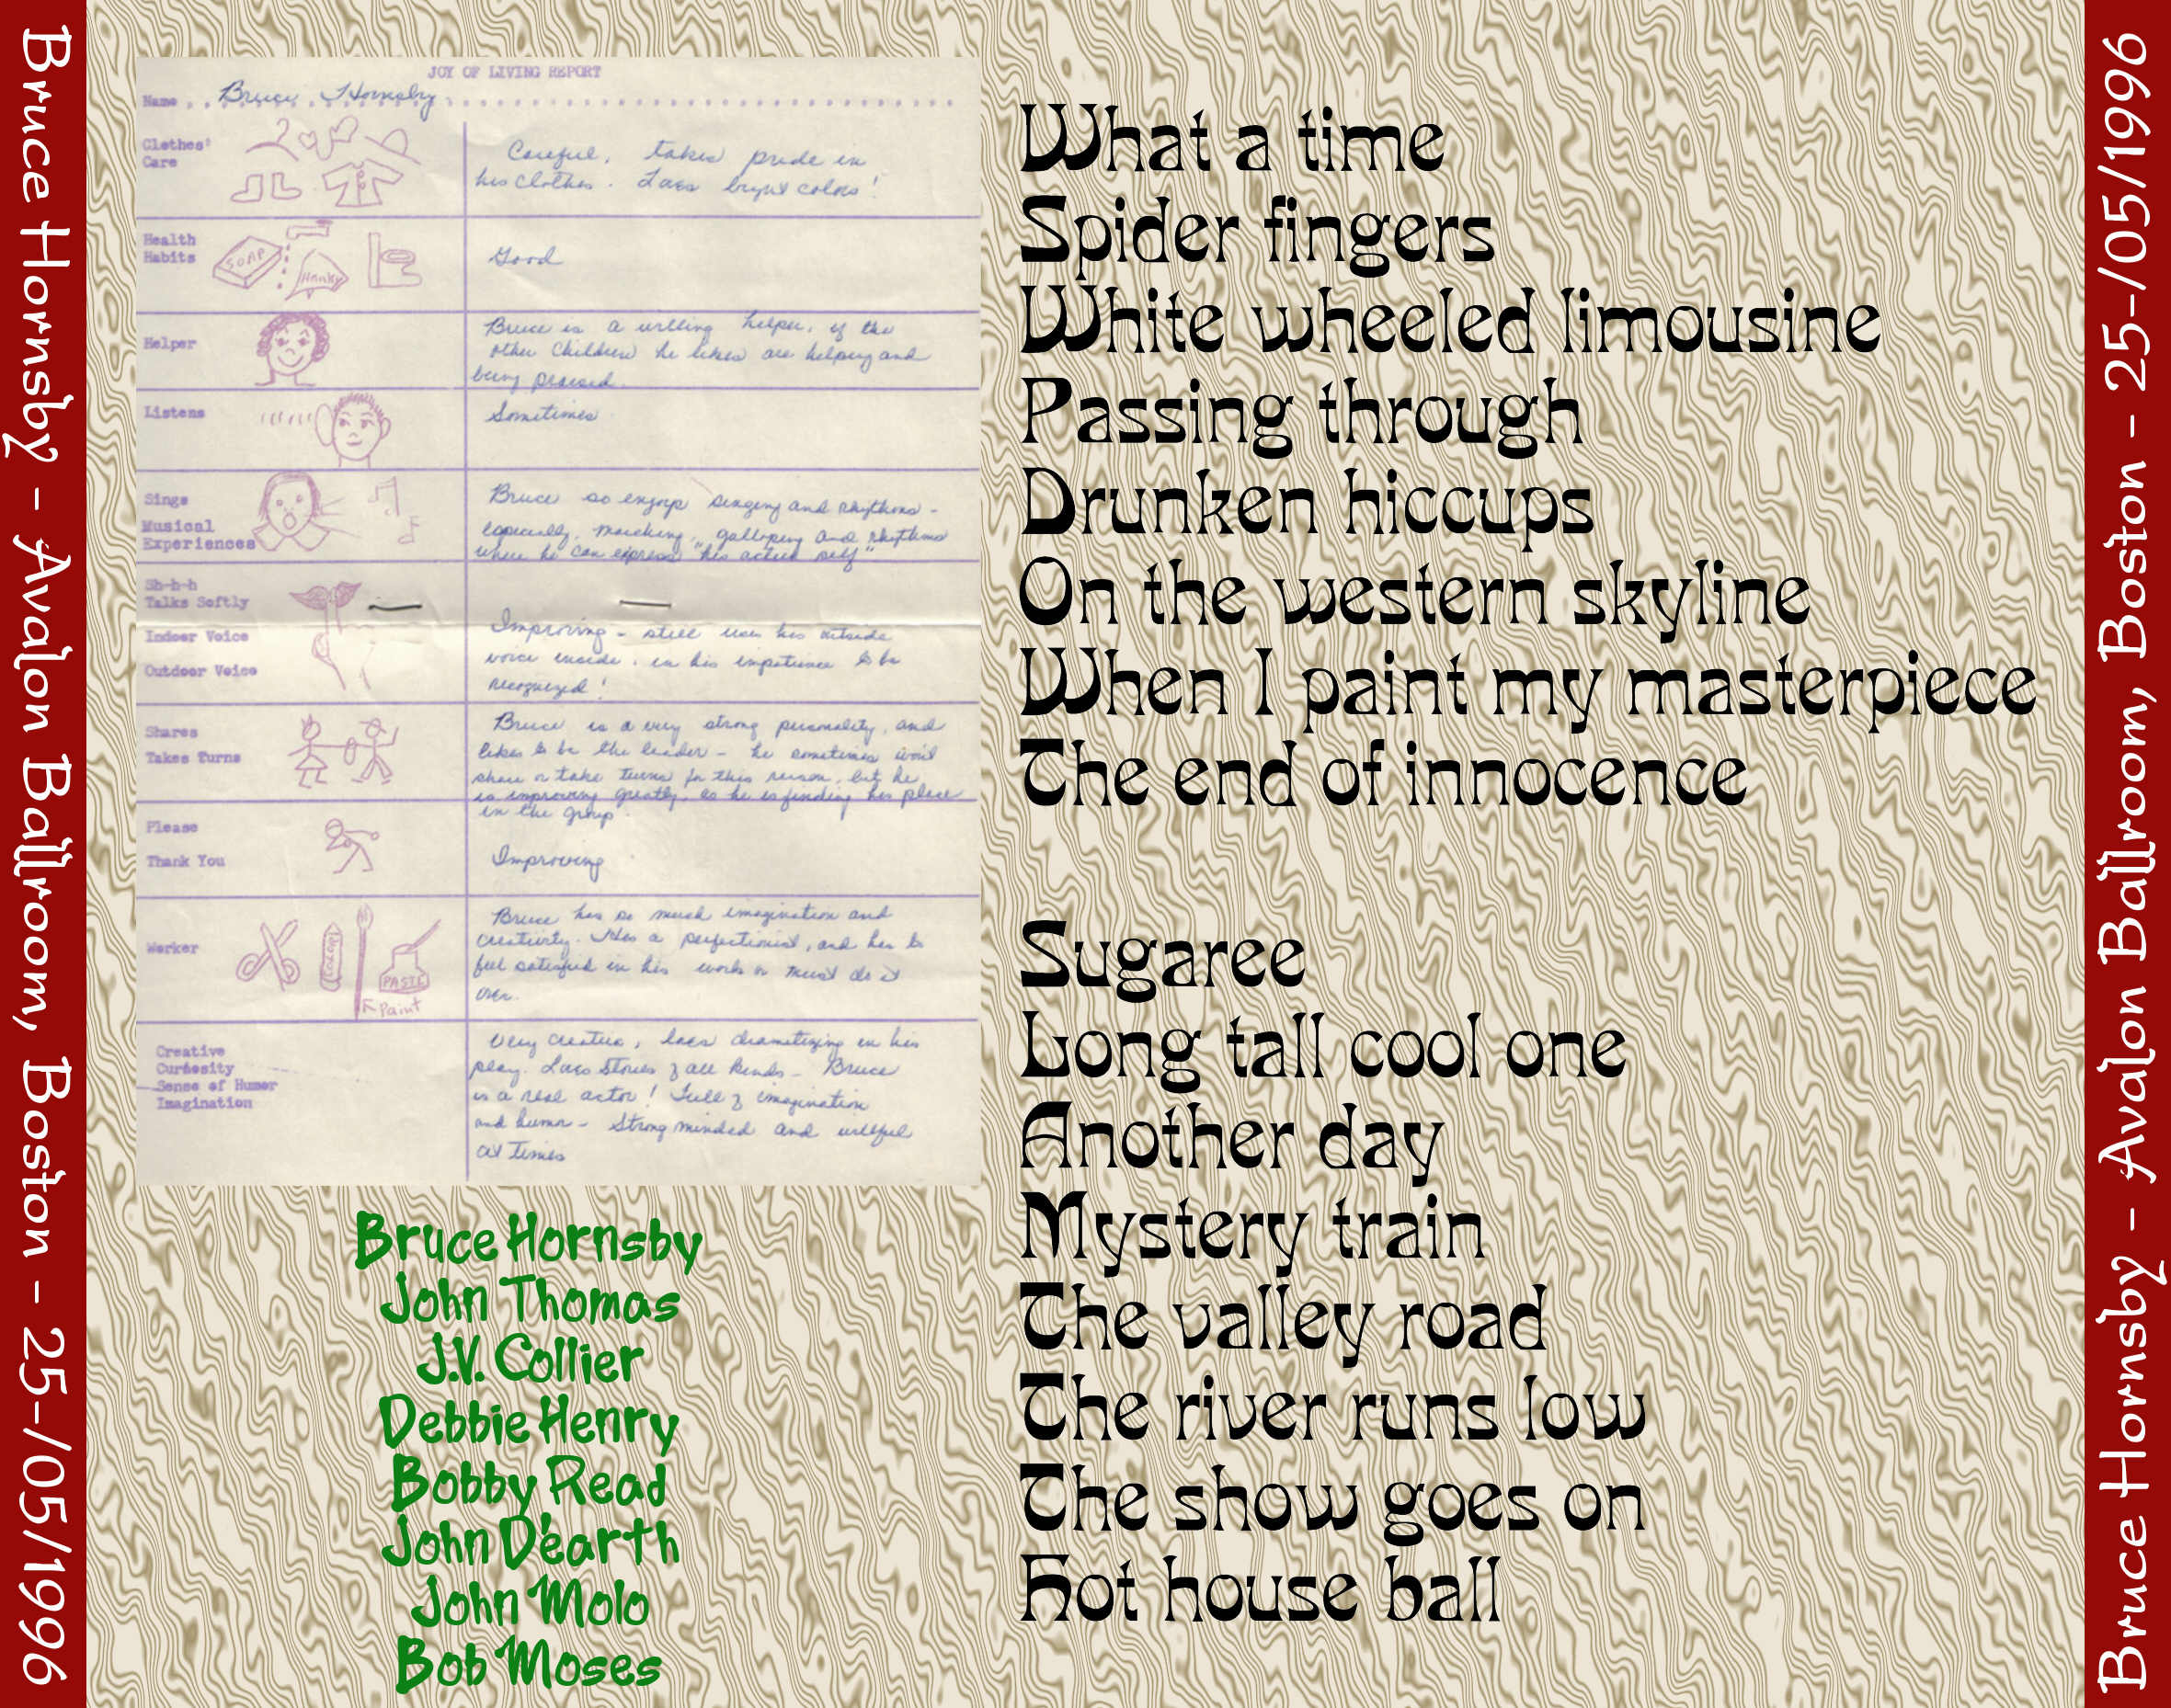 Bruce Hornsby - Avalon Ballroom, Boston - 25-/05/1996
JOY OF LIVING REPORT
Name Bruce Hornsby
Clothes'
Care
Careful, takes pride in
his clothes. Loves bright colors!
Health
Habits
SOAP
HANKY
Good
Helper
Bruce is a willing helper, if the
other children he likes are helping and
being praised.
Listens
Sometimes
Sings
Musical
Experiences
Bruce so enjoys singing and rhythms -
especially, marching, galloping and rhythms
where he can express "his active self"
Sh-h-h
Talks Softly
Indoor Voice
Outdoor Voice
Improving - still uses his outside
voice inside, in his impatience to be
recognized!
Shares
Takes Turns
Bruce is a very strong personality, and
likes to be the leader - he sometimes won't
share or take turns for this reason, but he
is improving greatly, as he is finding his place
in the group.
Please
Thank You
Improving
Worker
COLOR
PASTE
Paint
Bruce has so much imagination and
creativity. He's a perfectionist, and has to
feel satisfied in his work or must do it
over.
Creative
Curiosity
Sense of Humor
Imagination
Very creative, loves dramatizing in his
play. Loves stories of all kinds - Bruce
is a real actor! Full of imagination
and humor - Strong minded and willful
at times
Bruce Hornsby
John Thomas
J.V. Collier
Debbie Henry
Bobby Read
John D'earth
John Molo
Bob Moses
What a time
Spider fingers
White wheeled limousine
Passing through
Drunken hiccups
On the western skyline
When I paint my masterpiece
The end of innocence
Sugaree
Long tall cool one
Another day
Mystery train
The valley road
The river runs low
The show goes on
Hot house ball
Bruce Hornsby - Avalon Ballroom, Boston - 25-/05/1996